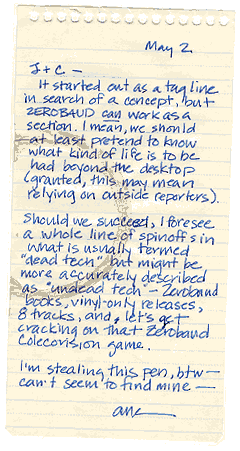 May 2
J + C —
It started out as a tag line
in search of a concept, but
ZEROBAUD can work as a
section. I mean, we should
at least pretend to know
what kind of life is to be
had beyond the desktop
(granted, this may mean
relying on outside reporters).
Should we succeed, I foresee
a whole line of spinoffs in
what is usually termed
"dead tech" but might be
more accurately described
as "undead tech" — Zerobaud
books, vinyl-only releases,
8 tracks, and, let's get
cracking on that Zerobaud
Colecovision game.
I'm stealing this pen, btw —
can't seem to find mine —